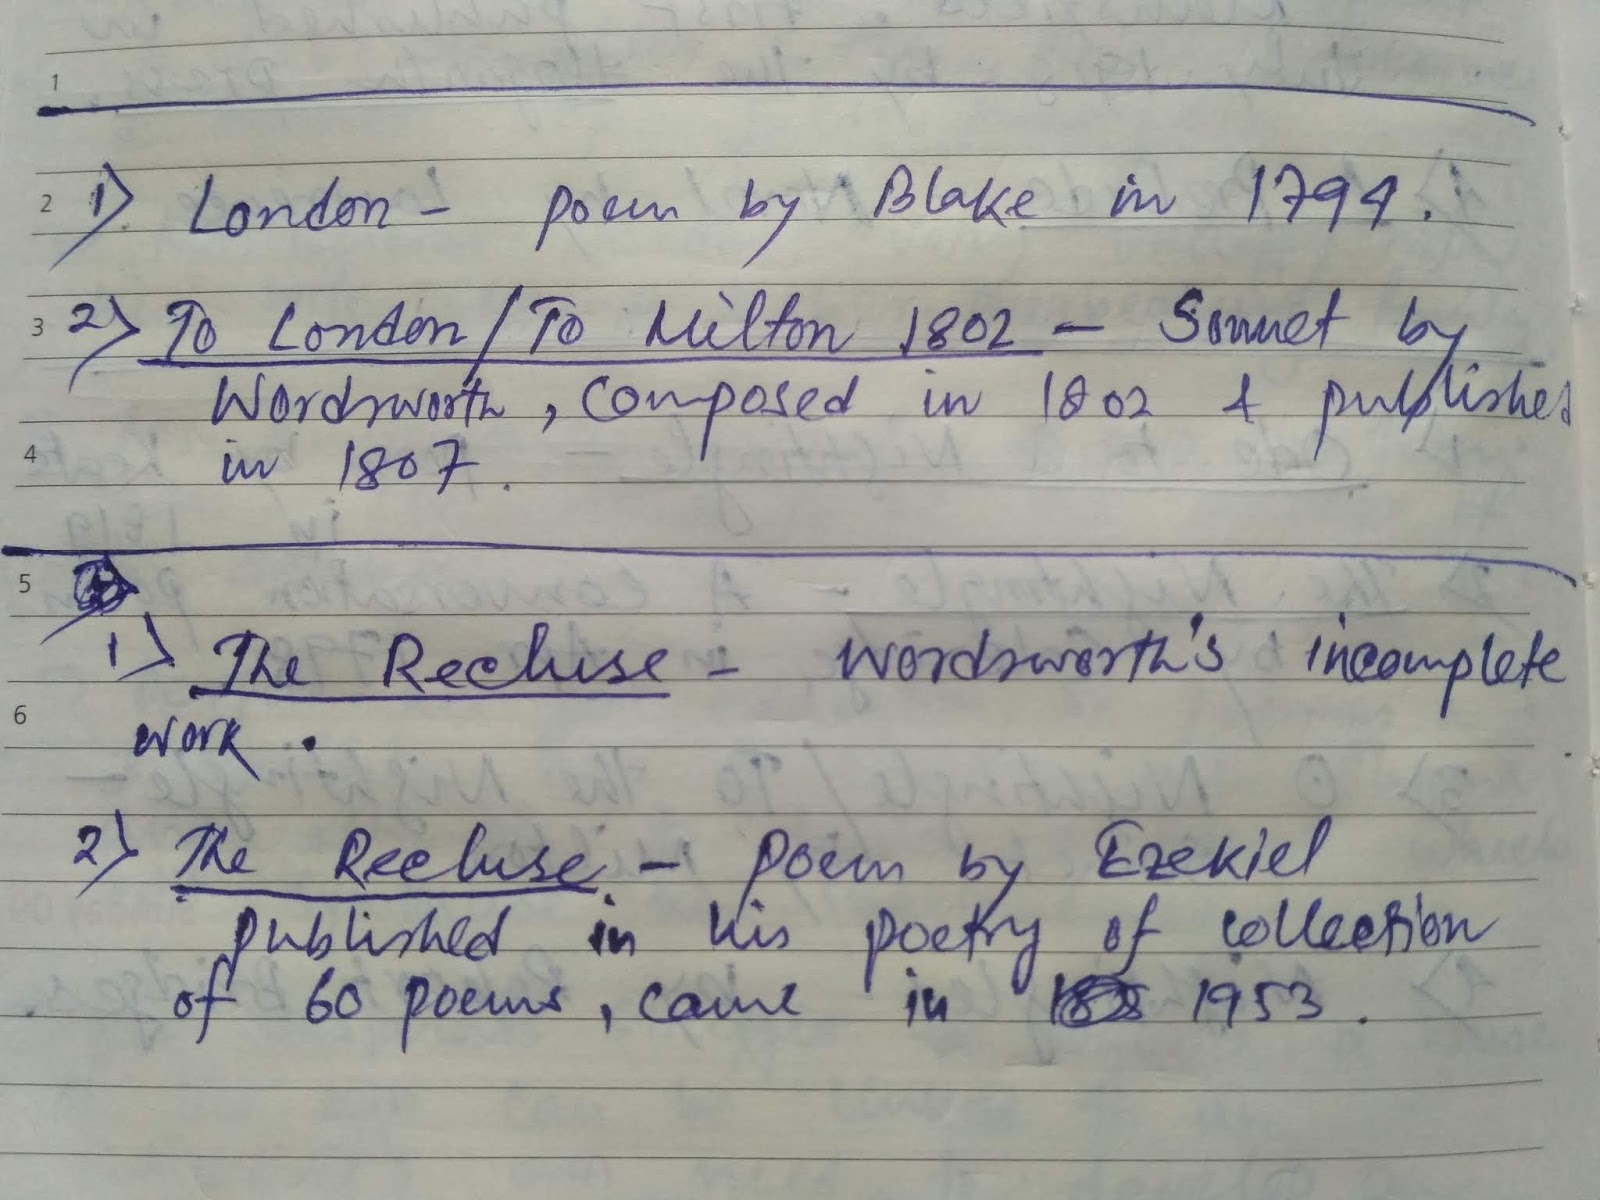 1
2 1) London - poem by Blake in 1794.
3 2) To London / To Milton 1802 - Sonnet by
Wordsworth, composed in 1802 & published
4 in 1807.
5
1) The Recluse - Wordsworth's incomplete
6 work.
2) The Recluse - Poem by Ezekiel
published in his poetry of collection
of 60 poems, came in 1953.